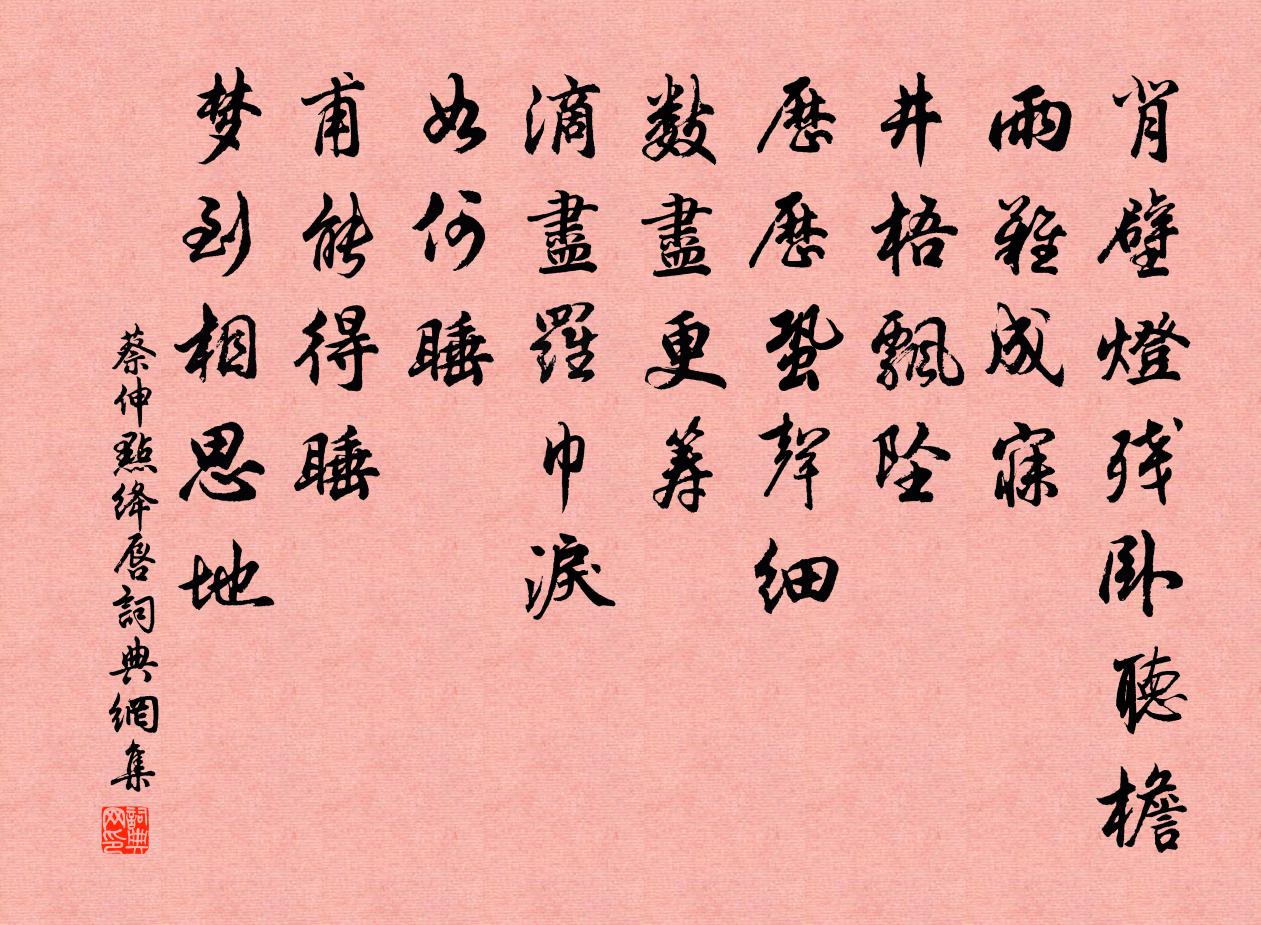 背壁燈残卧聽檐
雨難成寐
井梧飄坠
歷歷蛩聲細
數盡更籌
滴盡羅巾淚
如何睡
甫能得睡
梦到相思地
蔡伸點絳唇詞典網集
詞典网印